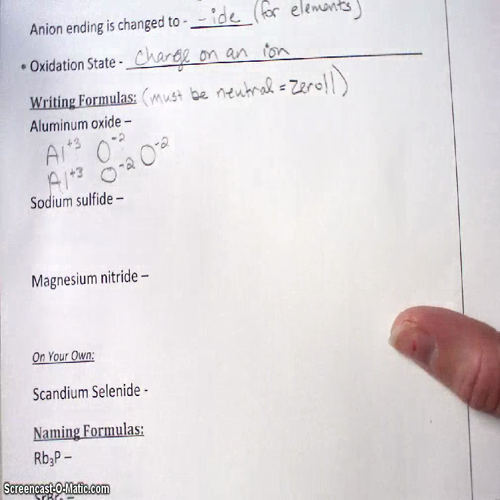 Anion ending is changed to - -ide (for elements)
• Oxidation State - Charge on an ion
Writing Formulas: (must be neutral = Zero!!)
Aluminum oxide –
Al+3 O-2 O-2
Al+3 O-2
Sodium sulfide –
Magnesium nitride –
On Your Own:
Scandium Selenide -
Naming Formulas:
Rb3P –
Screencast-O-Matic.com